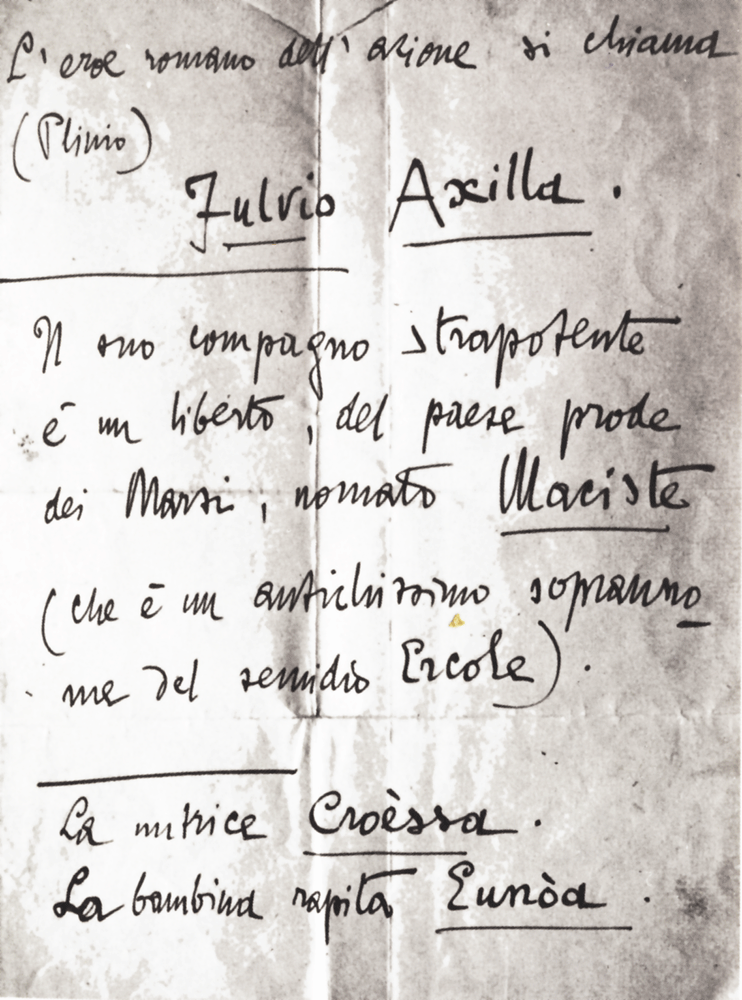 L'eroe romano dell'azione si chiama
(Plinio)
Fulvio Axilla.
Il suo compagno strapotente
è un liberto, del paese prode
dei Marsi, nomato Maciste
(che è un antichissimo sopranno
me del semidio Ercole).
La nutrice Croèssa.
La bambina rapita Eunòa.